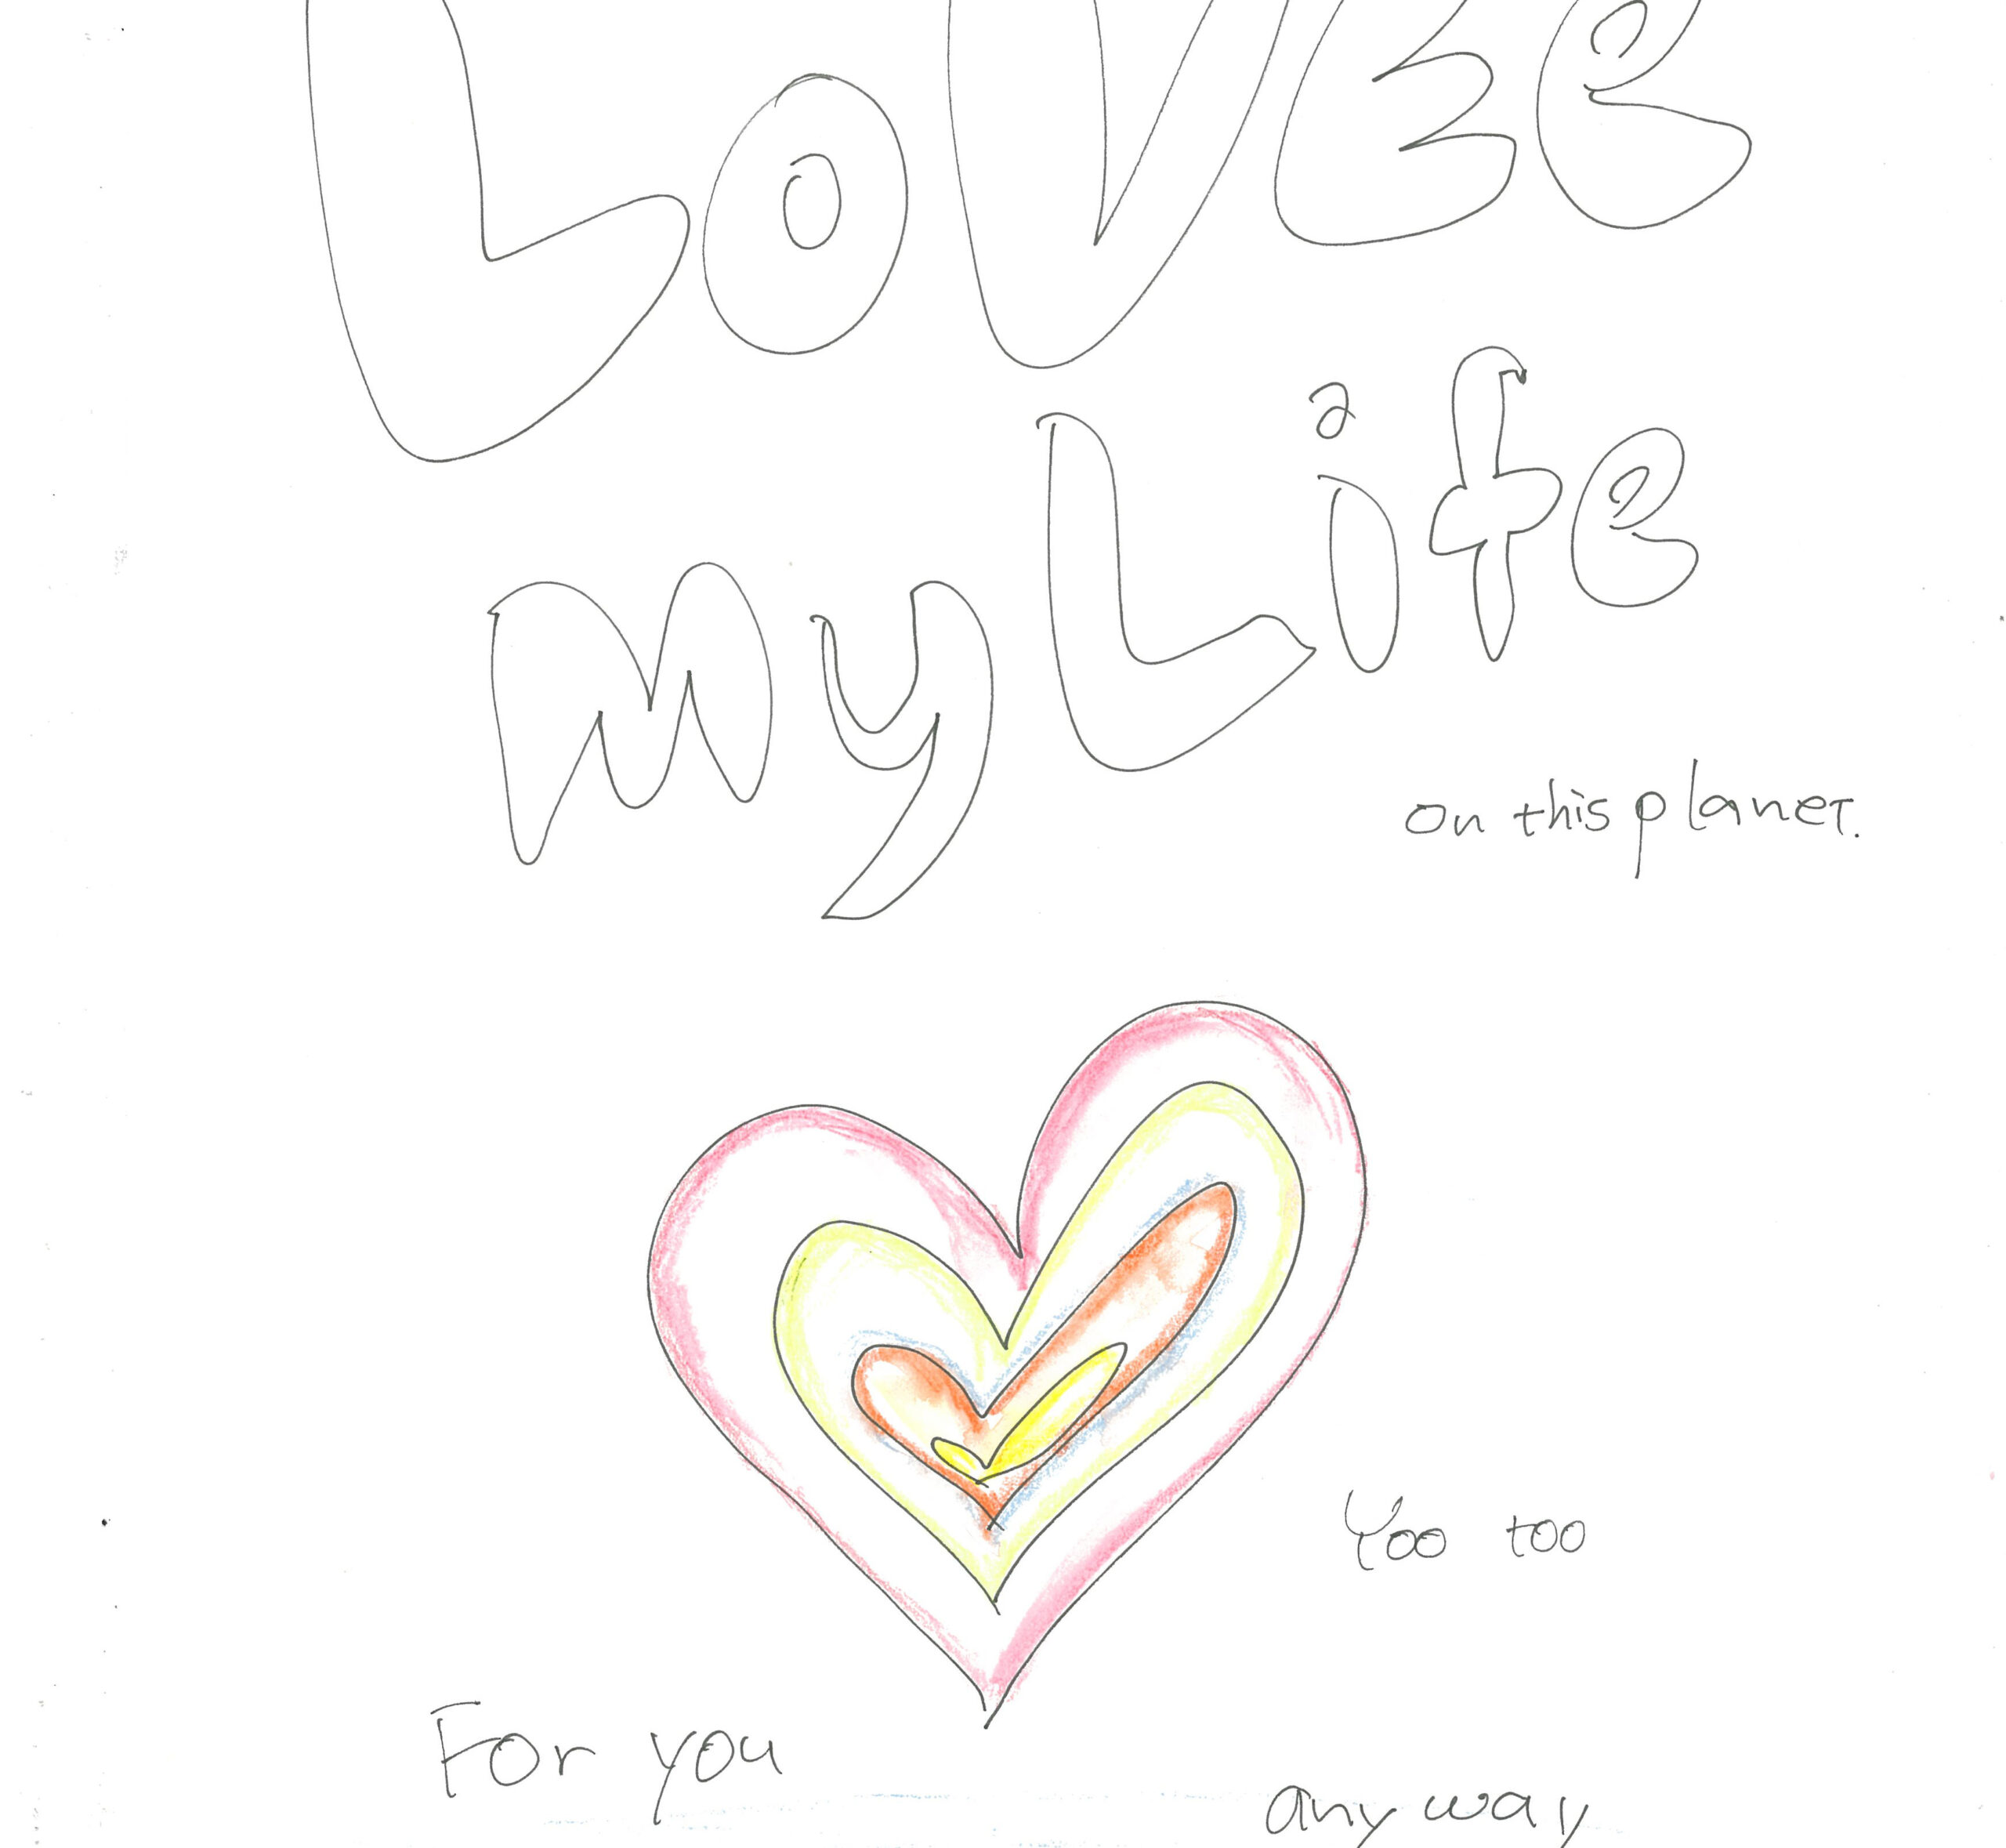 LoVEe
my Life
on this planet.
Yoo too
For you
any way